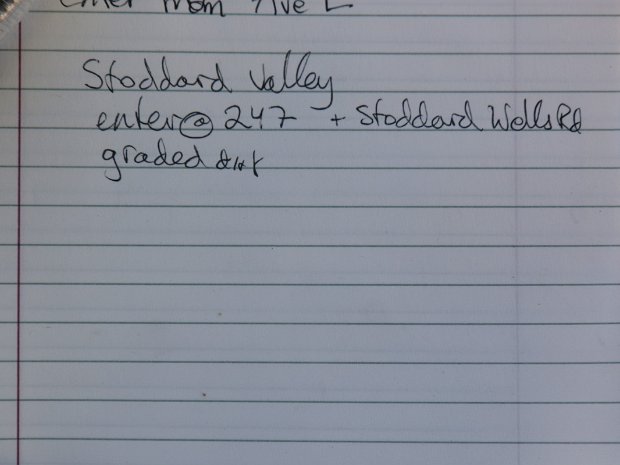 Enter from Ave L
Stoddard Valley
enter @ 247 + Stoddard Wells Rd
graded dirt